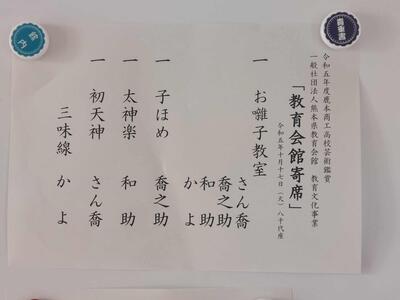 令和五年度鹿本商工高校芸術鑑賞
一般社団法人熊本県教育会館 教育文化事業
「教育会館寄席」
令和五年十月十七日(火)八千代座
一 お囃子教室 さん喬
喬之助
和助
かよ
一 子ほめ 喬之助
一 太神楽 和助
一 初天神 さん喬
三味線 かよ
館内